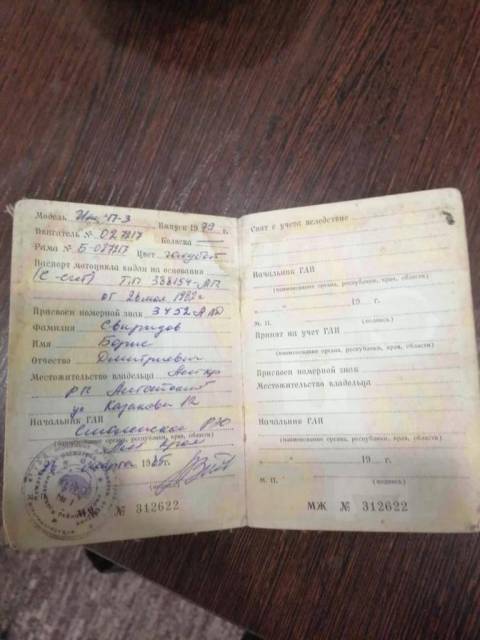 Модель Иж-П-3 Выпуск 1979 г.
Двигатель № 027917
Рама № Б-027917 Цвет голубой
Коляска —
Паспорт мотоцикла выдан на основании
ТП 388154-АП
от 26 мая 1982г
Присвоен номерной знак 3452
Фамилия Свиридов
Имя Борис
Отчество Дмитриевич
Местожительство владельца
рп
ул Казакова 12
Начальник ГАИ
(наименование органа, республики, края, области)
марта 1985 г.
(подпись)
МЖ № 312622
Снят с учета вследствие
Начальник ГАИ
(наименование органа, республики, края, области)
" " 19 г.
М. П. (подпись)
Принят на учет ГАИ
(наименование органа, республики, края, области)
Присвоен номерной знак
Местожительство владельца
Начальник ГАИ
(наименование органа, республики, края, области)
" " 19 г.
М. П. (подпись)
МЖ № 312622